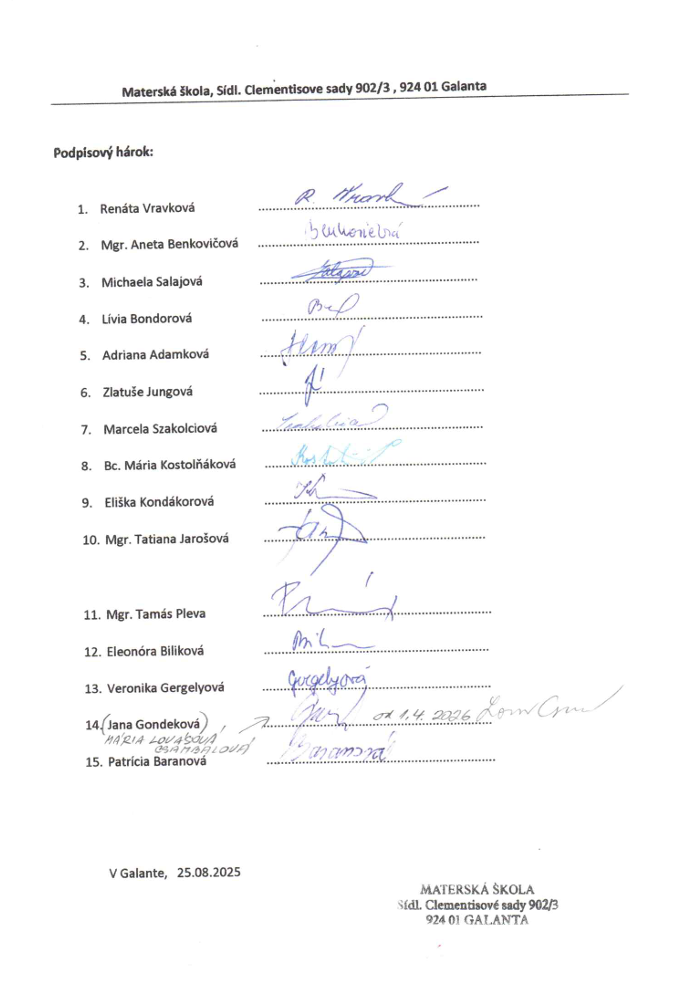 Materská škola, Sídl. Clementisove sady 902/3 , 924 01 Galanta
Podpisový hárok:
1. Renáta Vravková
2. Mgr. Aneta Benkovičová
3. Michaela Salajová
4. Lívia Bondorová
5. Adriana Adamková
6. Zlatuše Jungová
7. Marcela Szakolciová
8. Bc. Mária Kostolňáková
9. Eliška Kondákorová
10. Mgr. Tatiana Jarošová
11. Mgr. Tamás Pleva
12. Eleonóra Biliková
13. Veronika Gergelyová Gergelyová
14. (Jana Gondeková) od 1.4. 2026
MÁRIA LOVÁSOVÁ
CSAMBALOVÁ
15. Patrícia Baranová Baranová
V Galante, 25.08.2025
MATERSKÁ ŠKOLA
Sídl. Clementisové sady 902/3
924 01 GALANTA